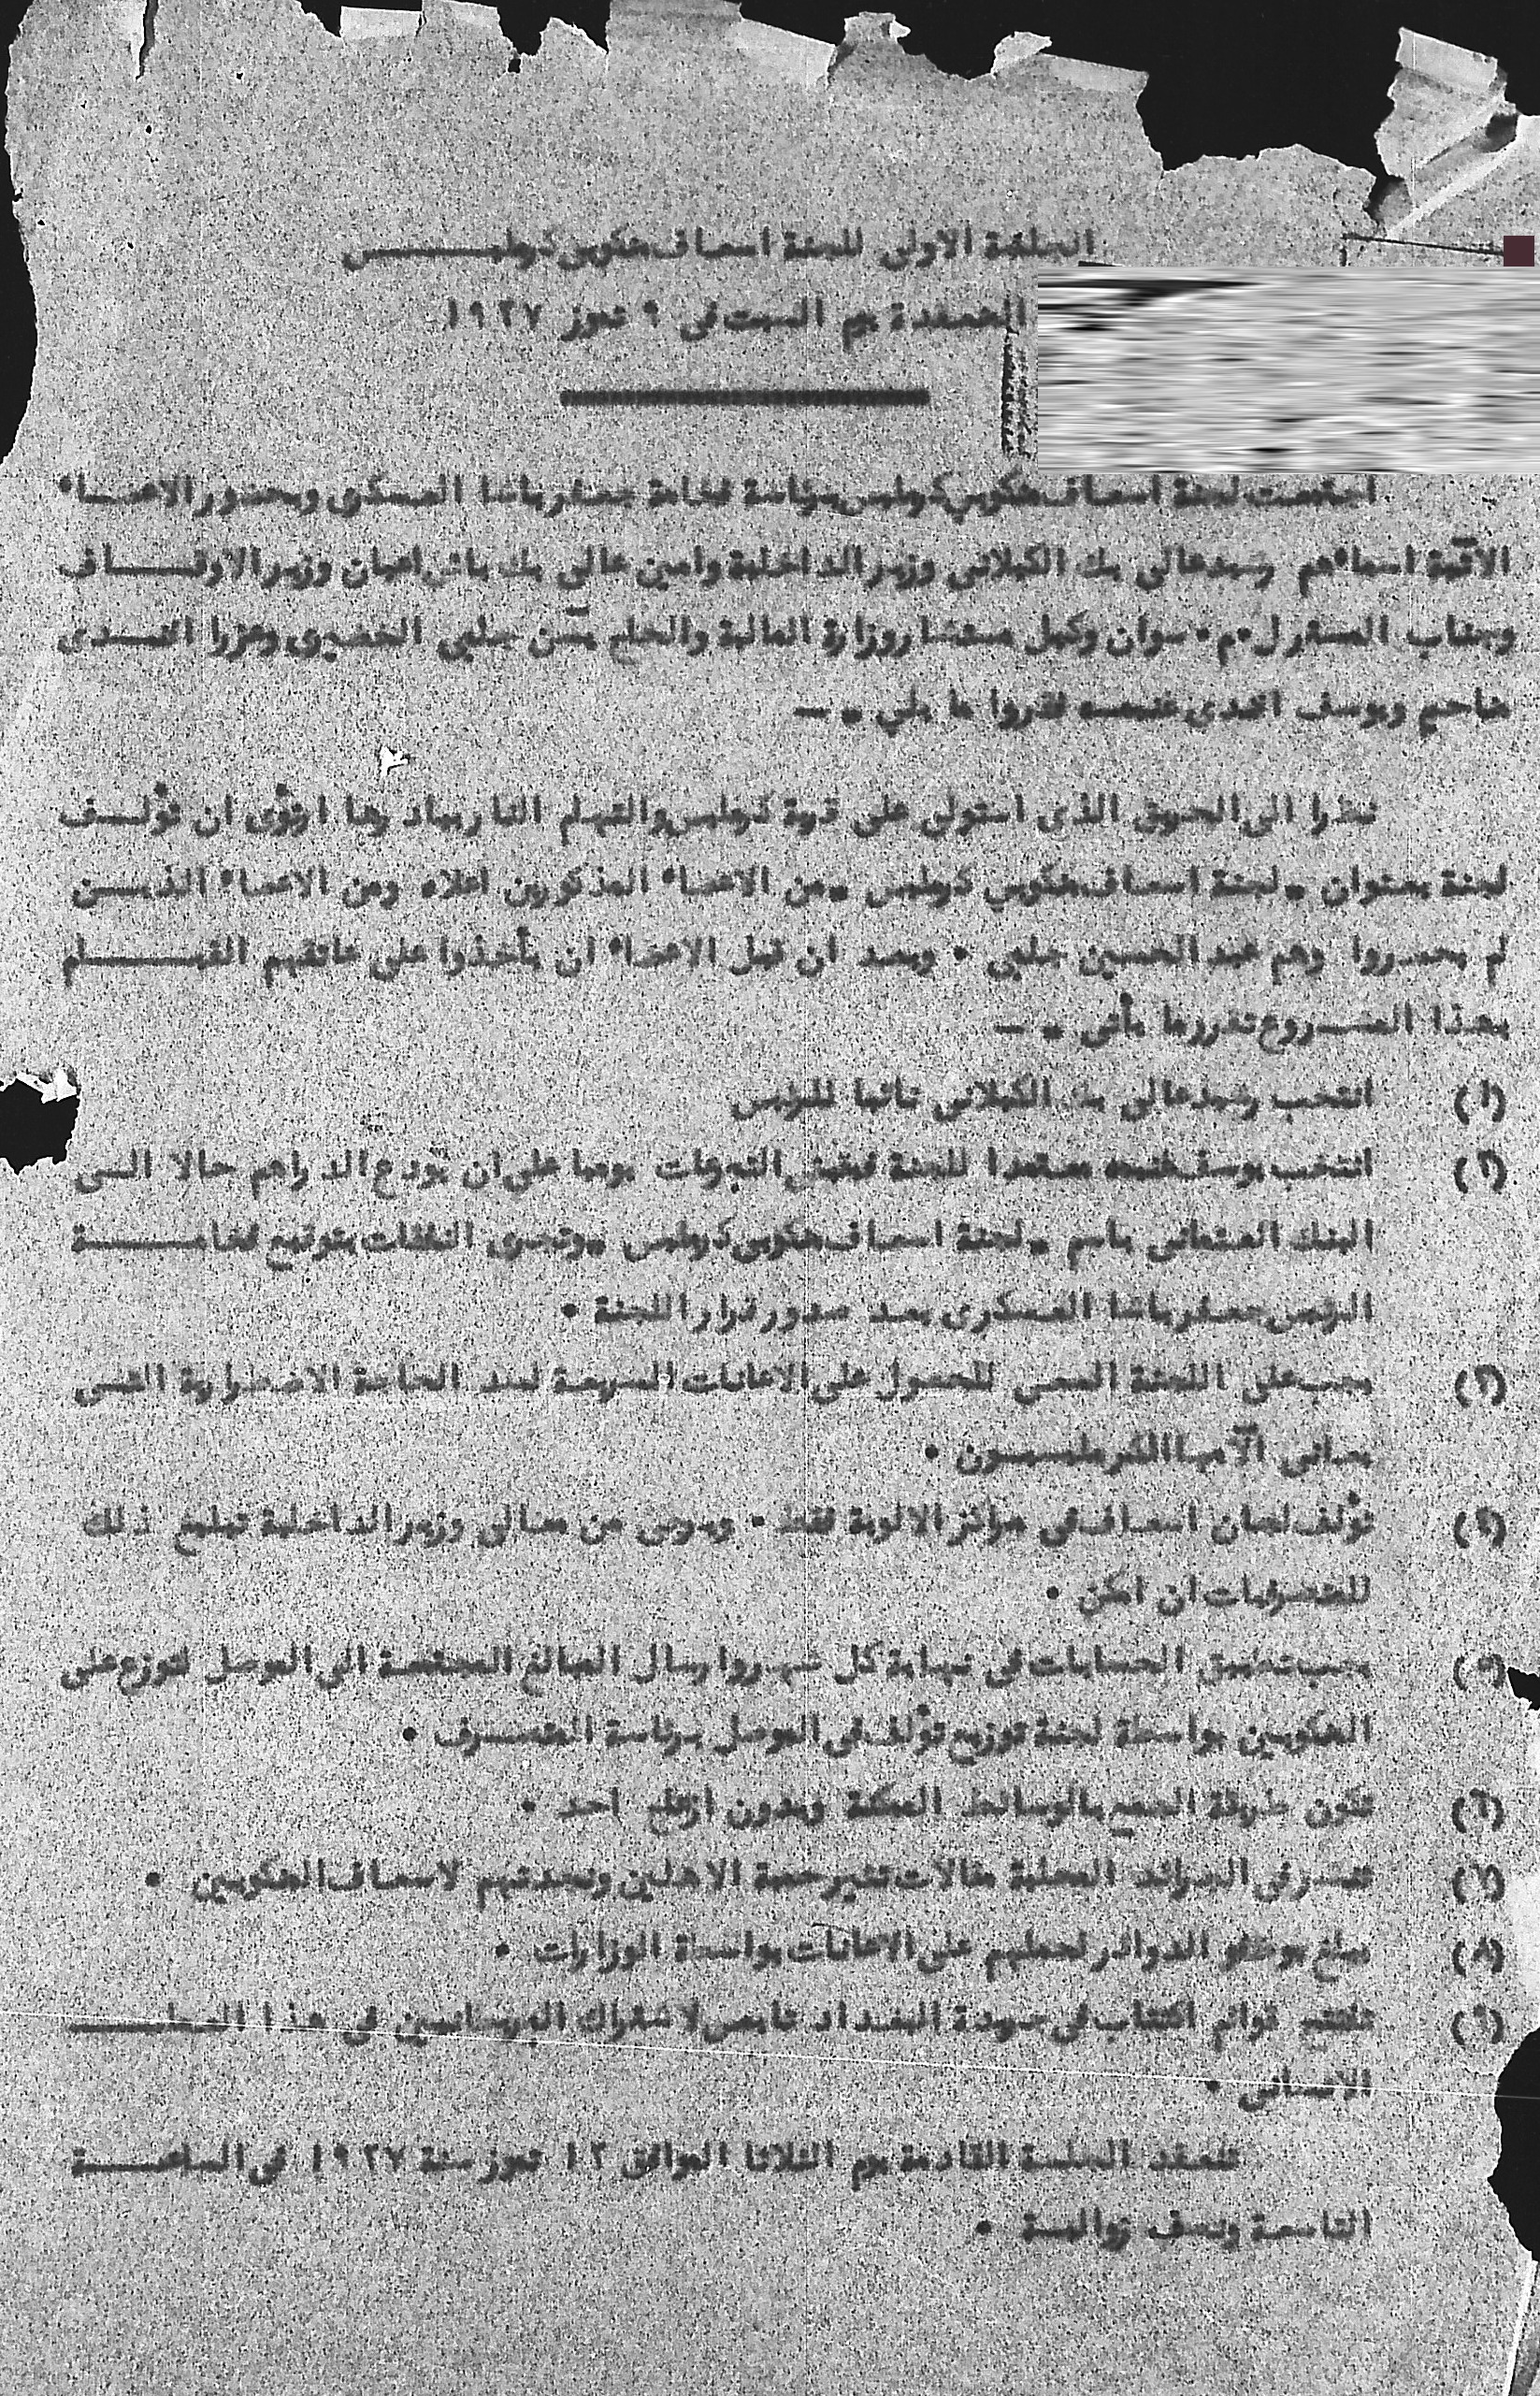 الجلسة الاولى للجنة اسعاف منكوبى كرمليس
المنعقدة يوم السبت فى ٩ تموز ١٩٢٧
اجتمعت لجنة اسعاف منكوبي كرمليس برئاسة فخامة جعفر باشا العسكرى وبحضور الاعضاء
الآتية اسماءهم رشيد عالى بك الكيلانى وزير الداخلية وامين عالى بك باش اعيان وزير الاوقاف
وجناب المستر ل.م. سوان وكيل مستشار وزارة المالية والحاج محسن جلبي الخضيرى وعزرا افندى
مناحيم ويوسف افندى غنيمه فقرروا ما يلي :ـ
نظرا الى الحريق الذى استولى على قرية كرمليس والتهام النار بيادرها ارتؤى ان تؤلف
لجنة بعنوان " لجنة اسعاف منكوبي كرمليس " من الاعضاء المذكورين اعلاه ومن الاعضاء الذين
لم يحضروا وهم عبد الحسين جلبي . وبعد ان قبل الاعضاء ان يأخذوا على عاتقهم القيام
بهذا المشروع تقرر ما يأتى :ـ
(١) انتخب رشيد عالى بك الكيلانى نائبا للرئيس
(٢) انتخب يوسف غنيمه معتمدا للجنة ليقبض التبرعات يوميا على ان يودع الدراهم حالا الى
البنك العثمانى باسم " لجنة اسعاف منكوبى كرمليس " وتجرى النفقات بتوقيع فخامة
الرئيس جعفر باشا العسكرى بعد صدور قرار اللجنة .
(٣) يجب على اللجنة السعى للحصول على الاعانات السريعة لسد الحاجة الاضطرارية التى
يعانى آلامها الكرمليسيون .
(٤) تؤلف لجان اسعاف في مراكز الالوية فقط . ويرجى من معالى وزير الداخلية تبليغ ذلك
للمتصرفيات ان امكن .
(٥) يجب تدقيق الحسابات فى نهاية كل شهر وارسال المبالغ المجتمعة الى الموصل لتوزع على
المنكوبين بواسطة لجنة توزيع تؤلف فى الموصل برئاسة المتصرف .
(٦) تكون طريقة الجمع بالوسائط الممكنة وبدون ازعاج احد .
(٧) تنشر فى الجرائد المحلية مقالات تثير حمية الاهلين ونجدتهم لاسعاف المنكوبين .
(٨) يبلغ موظفو الدوائر لحملهم على الاعانات بواسطة الوزارات .
(٩) تفتتح قوائم اكتتاب فى جريدة البغداد تايمس لاشتراك البريطانيين فى هذا العمل
الانسانى .
تنعقد الجلسة القادمة يوم الثلاثا الموافق ١٢ تموز سنة ١٩٢٧ في الساعة
التاسعة ونصف زوالية .